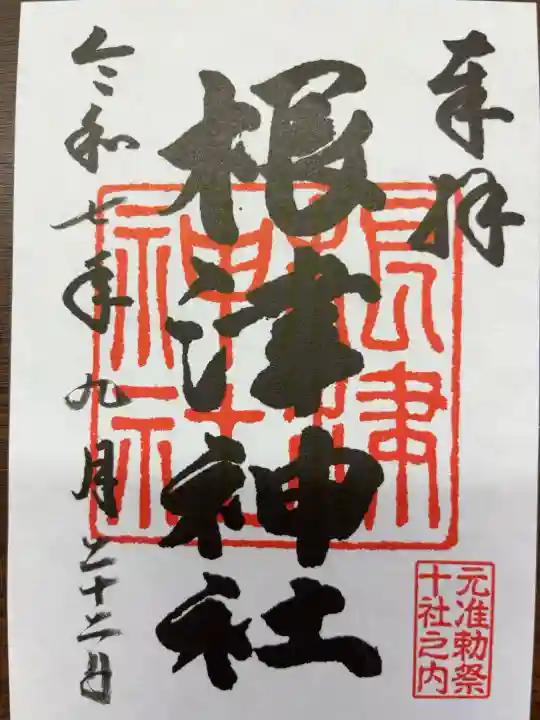 奉拜
根津神社
根津
神社
元准勅祭
十社之内
令和七年九月二十二日